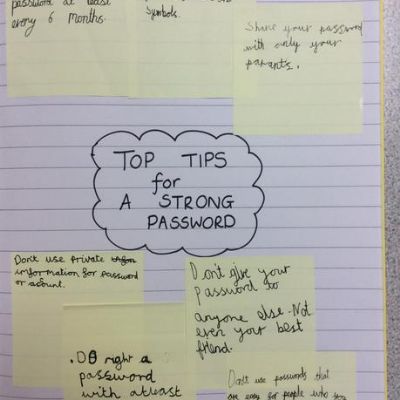 password at least
every 6 months.
symbols.
Share your password
with only your
parants.
TOP TIPS
for
A STRONG
PASSWORD
Don't use private
information for password
or acount.
Don't give your
password to
anyone else. Not
even your best
friend.
. DO right a
password
with atleast
Dont use passwords that
are easy for people who you